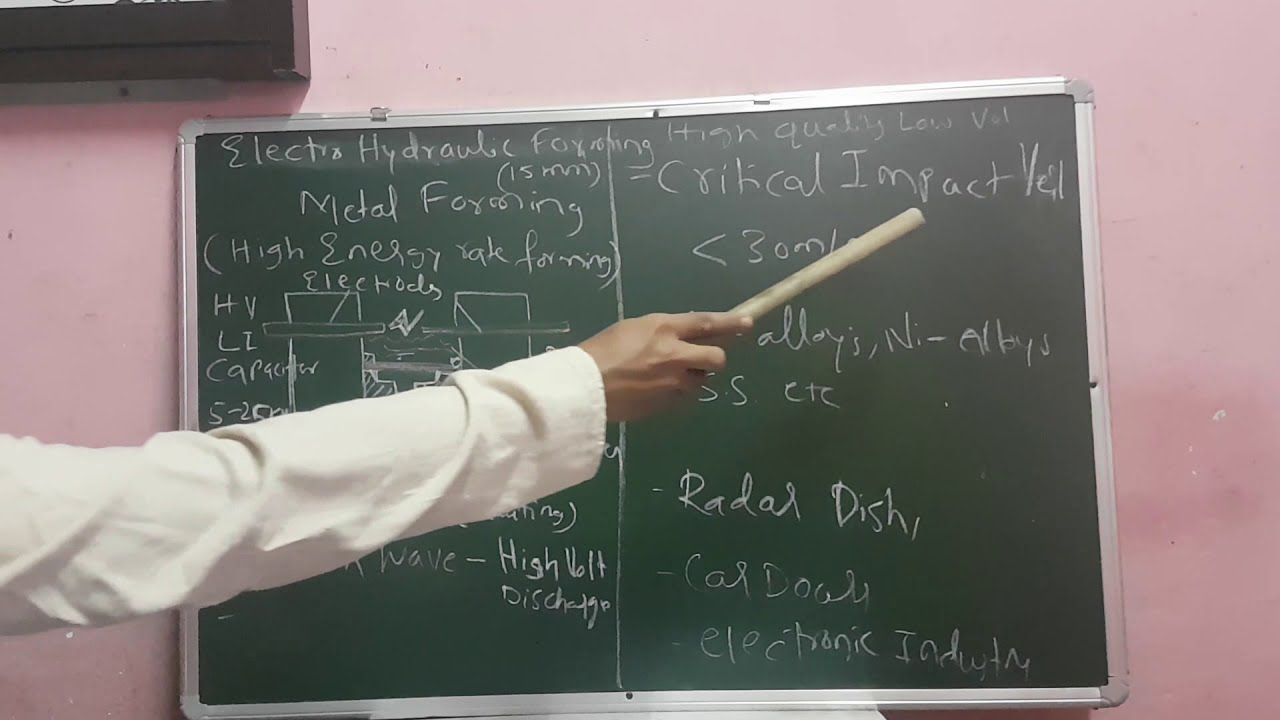 Electro Hydraulic Forming
(15mm)
Metal Forming
(High Energy rate forming)
Electrods
HV
LI
Capacitor
Wave - High Volt
Discharge
= High quality Low Vol
= Critical Impact Vel
< 30m/
alloys, Ni- Alloys
S.S. etc
- Radar Dish,
- Car Doors
- electronic Industry